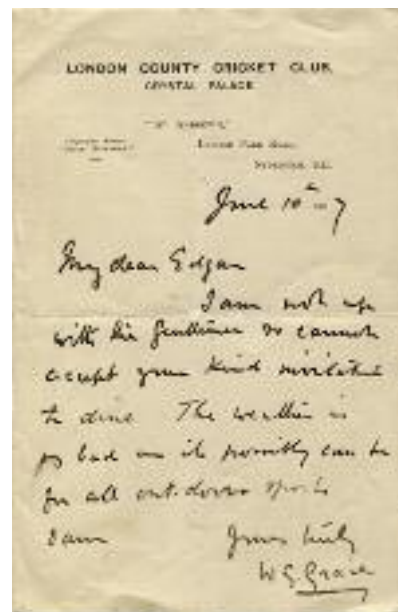 LONDON COUNTY CRICKET CLUB,
CRYSTAL PALACE
June 10th 7
My dear Edgar
I am not up
with the Gentlemen so cannot
accept your kind invitation
to dine The weather is
as bad as it possibly can be
for all out-door sports
I am Yours truly
W G Grace